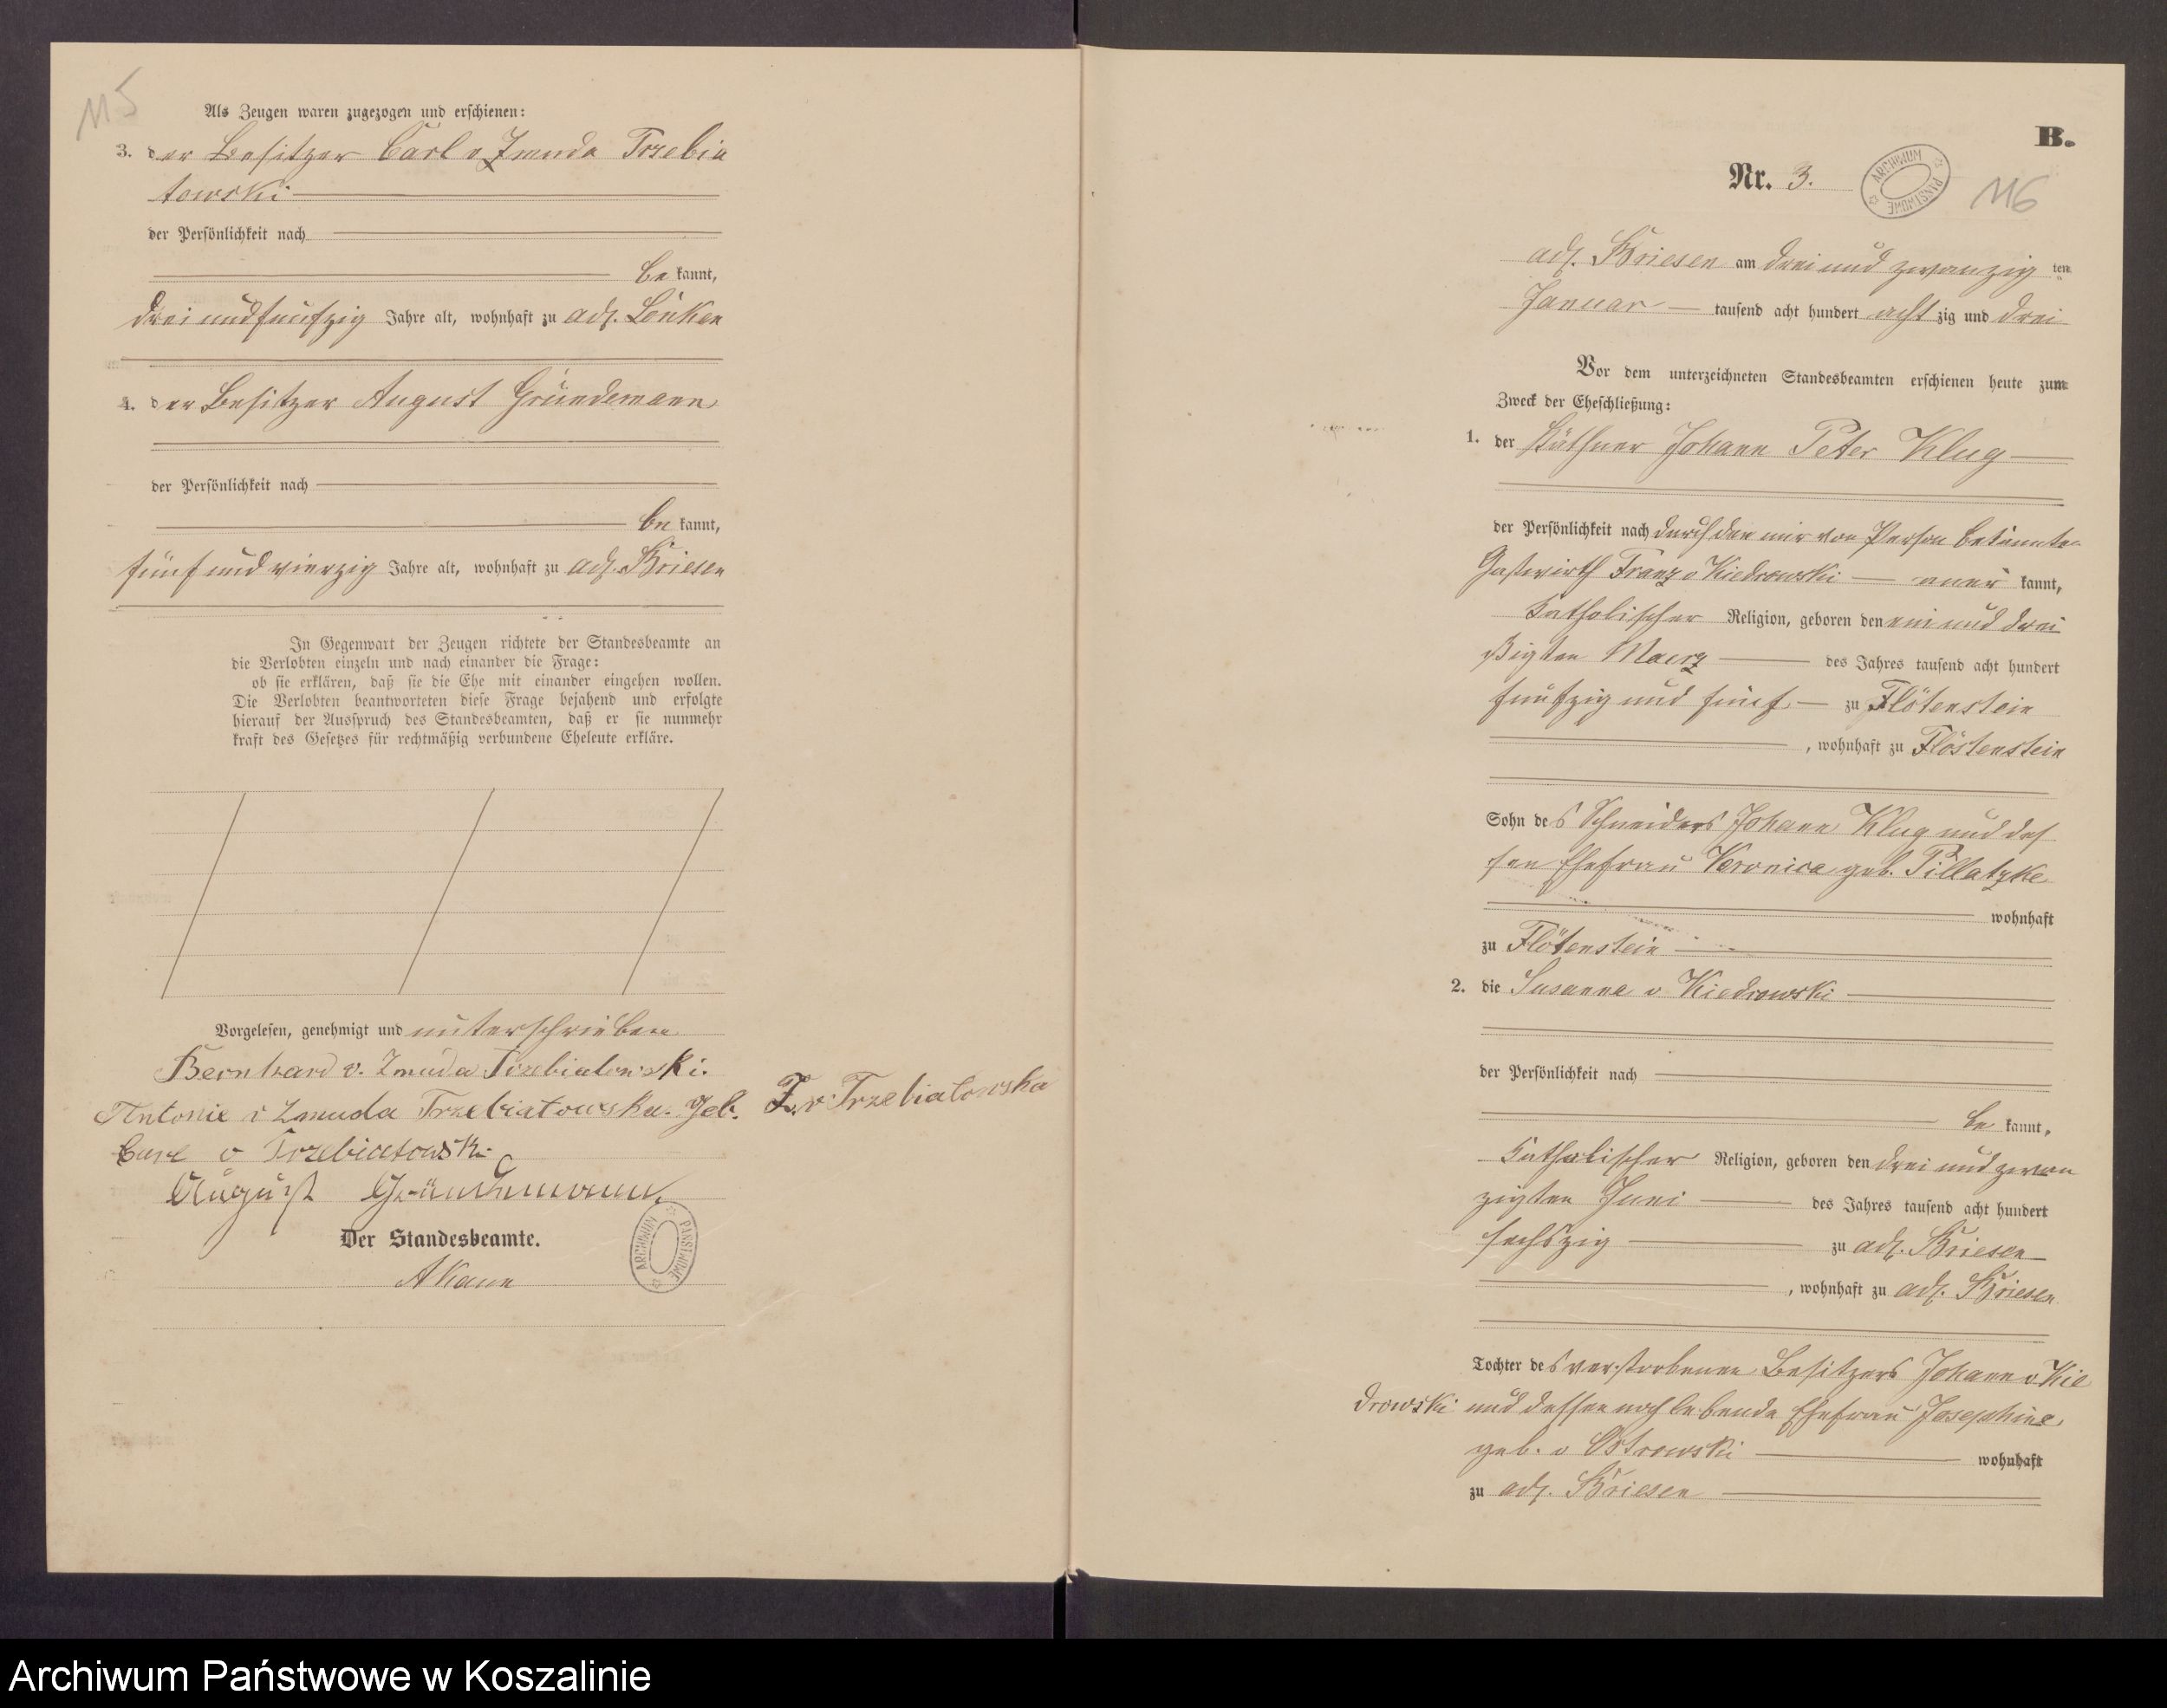 115
Als Zeugen waren zugezogen und erschienen:
3. der Besitzer Carl v Zmuda Trzebia
towski
der Persönlichkeit nach
be kannt,
drei und fünfzig Jahre alt, wohnhaft zu adl. Lonken
4. der Besitzer August Gründemann
der Persönlichkeit nach
be kannt,
fünf und vierzig Jahre alt, wohnhaft zu adl. Briesen
In Gegenwart der Zeugen richtete der Standesbeamte an
die Verlobten einzeln und nach einander die Frage:
ob sie erklären, daß sie die Ehe mit einander eingehen wollen.
Die Verlobten beantworteten diese Frage bejahend und erfolgte
hierauf der Ausspruch des Standesbeamten, daß er sie nunmehr
kraft des Gesetzes für rechtmäßig verbundene Eheleute erkläre.
Vorgelesen, genehmigt und unterschrieben
Bernhard v. Zmuda Trzebiatowski.
Antonie v Zmuda Trzebiatowska. geb. Z. v. Trzebiatowska
Carl v Trzebiatowski
August Gründemann
Der Standesbeamte.
ARCHIWUM PAŃSTWOWE
B.
Nr. 3.
ARCHIWUM PAŃSTWOWE
116
adl. Briesen am drei und zwanzig ten
Januar tausend acht hundert acht zig und drei
Vor dem unterzeichneten Standesbeamten erschienen heute zum
Zweck der Eheschließung:
1. der Käthner Johann Peter Klug
der Persönlichkeit nach durch den mir von Person bekannten
Gastwirth Franz v Kiedrowski aner kannt,
katholischer Religion, geboren den ein und drei
ßigten Maerz des Jahres tausend acht hundert
fünfzig und fünf zu Flötenstein
, wohnhaft zu Flöstenstein
Sohn des Schneiders Johann Klug und des
sen Ehefrau Veronica geb. Pillatzke
wohnhaft
zu Flötenstein
2. die Susanna v Kiedrowski
der Persönlichkeit nach
be kannt,
katholischer Religion, geboren den drei und zwan
zigten Juni des Jahres tausend acht hundert
sechszig zu adl. Briesen
, wohnhaft zu adl. Briesen
Tochter des verstorbenen Besitzers Johann v Kie
drowski und dessen noch lebende Ehefrau Josephine
geb. v Ostrowski wohnhaft
zu adl. Briesen
Archiwum Państwowe w Koszalinie